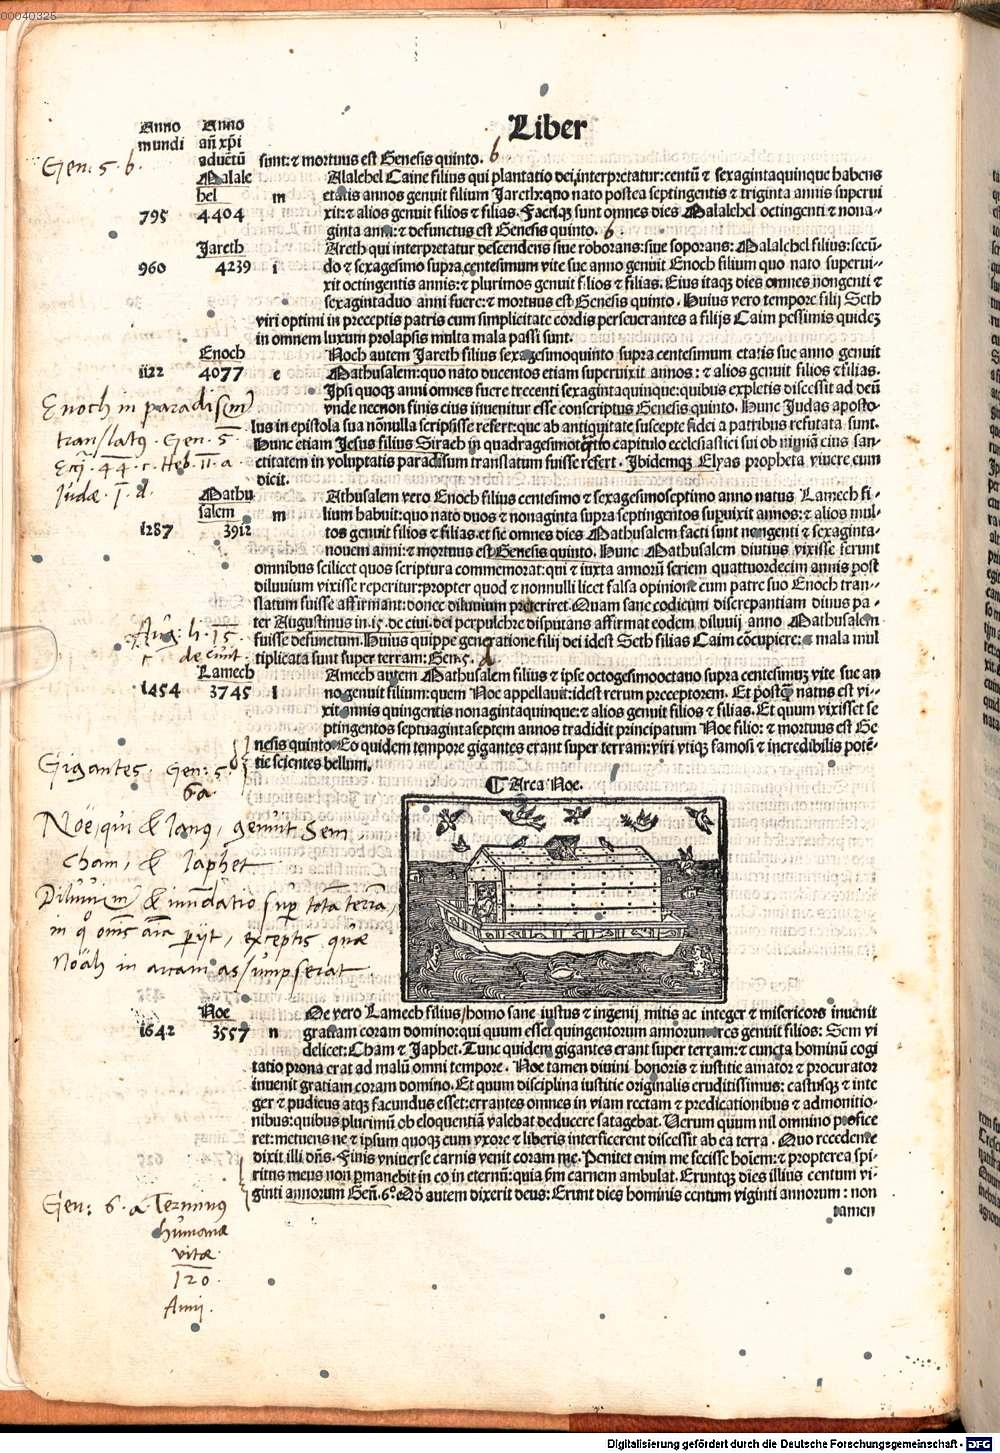 00040325
Liber
Anno mundi
Anno añ xp̃i aduẽtũ
sunt: ⁊ mortuus est Genesis quinto. b
Gen: 5. b.
Malale
hel
795 4404
m Alalehel Caine filius qui plantatio dei interpretatur: centũ ⁊ sexagintaquinque habens
etatis annos genuit filium Jareth: quo nato postea septingentis ⁊ triginta annis superui
xit: ⁊ alios genuit filios ⁊ filias. Factiqʒ sunt omnes dies Malalehel octingenti ⁊ nona-
ginta anni: ⁊ defunctus est Genesis quinto. b.
Jareth
960 4239
i Areth qui interpretatur descendens siue roborans: siue soporans: Malalehel filius: secũ-
do ⁊ sexagesimo supra centesimum vite sue anno genuit Enoch filium quo nato superui-
xit octingentis annis: ⁊ plurimos genuit filios ⁊ filias. Eius itaqʒ dies omnes nongenti ⁊
sexagintaduo anni fuere: ⁊ mortuus est Genesis quinto. Huius vero tempore filij Seth
viri optimi in preceptis patris cum simplicitate cordis perseuerantes a filijs Caim pessimis quideʒ
in omnem luxum prolapsis multa mala passi sunt.
Enoch
1122 4077
e Noch autem Jareth filius sexagesimoquinto supra centesimum etatis sue anno genuit
Mathusalem: quo nato ducentos etiam superuixit annos: ⁊ alios genuit filios ⁊ filias.
Ipsi quoqʒ anni omnes fuere trecenti sexagintaquinque: quibus expletis discessit ad deũ
vnde necnon finis eius inuenitur esse conscriptus Genesis quinto. Hunc Judas aposto-
lus in epistola sua nõnulla scripsisse refert: que ab antiquitate suscepte fidei a patribus refutata sunt.
Hunc etiam Jesus filius Sirach in quadragesimoq̃rto capitulo ecclesiastici sui ob nimiã eius san-
ctitatem in voluptatis paradisum translatum fuisse refert. Ibidemqʒ Elyas propheta viuere cum
dicit.
Enoch in paradis(m)
translatq. Gen. 5.
Eccj. 44. c. Heb. 11. a.
Judæ. I. d.
Mathu
salem
1287 3912
m Athusalem vero Enoch filius centesimo ⁊ sexagesimoseptimo anno natus Lamech fi-
lium habuit: quo nato duos ⁊ nonaginta supra septingentos supuixit annos: ⁊ alios mul-
tos genuit filios ⁊ filias. et sic omnes dies Mathusalem facti sunt nongenti ⁊ sexaginta-
nouem anni: ⁊ mortuus est Genesis quinto. Hunc Mathusalem diutius vixisse ferunt
omnibus scilicet quos scriptura commemorat: qui ⁊ iuxta annorũ seriem quattuordecim annis post
diluuium vixisse reperitur: propter quod ⁊ nonnulli licet falsa opinione cum patre suo Enoch tran-
slatum fuisse affirmant: donec diluuium preteriret. Quam sane codicum discrepantiam diuus pa-
ter Augustinus in .15. de ciui. dei perpulchre disputans affirmat eodem diluuij anno Mathusalem
fuisse defunctum. Huius quippe generatione filij dei idest Seth filias Caim cõcupiere: ⁊ mala mul
tiplicata sunt super terram: Gen. 5.
Aug: li. 15.
c de ciuit.
Lamech
1454 3745
l Amech autem Mathusalem filius ⁊ ipse octogesimooctauo supra centesimuʒ vite sue an
no genuit filium: quem Noe appellauit: idest rerum preceptorem. Et postq̃ natus est vi-
xit annis quingentis nonagintaquinque: ⁊ alios genuit filios ⁊ filias. Et quum vixisset se
ptingentos septuagintaseptem annos tradidit principatum Noe filio: ⁊ mortuus est Ge
nesis quinto. Eo quidem tempore gigantes erant super terram: viri vtiqʒ famosi ⁊ incredibilis potẽ-
tie scientes bellum.
Gigantes, Gen: 5.
6a.
¶ Arca Noe.
Nöe, qui & Ianq, genuit Sem
Cham, & Iaphet
Diluuiu(m) & inũdatio sup̱ totã terrã,
in q̊ oms aĩa pijt, exceptis, quæ
Noäh in arcam assumpserat
Noe
1642 3557
n Oe vero Lamech filius/homo sane iustus ⁊ ingenij mitis ac integer ⁊ misericors inuenit
gratiam coram domino: qui quum esset quingentorum annorum tres genuit filios: Sem vi
delicet: Cham ⁊ Japhet. Tunc quidem gigantes erant super terram: ⁊ cuncta hominũ cogi
tatio prona erat ad malũ omni tempore. Noe tamen diuini honoris ⁊ iustitie amator ⁊ procurator
inuenit gratiam coram domino. Et quum disciplina iustitie originalis eruditissimus: castusqʒ ⁊ inte
ger ⁊ pudicus atqʒ facundus esset: errantes omnes in viam rectam ⁊ predicationibus ⁊ admonitio-
nibus: quibus plurimũ ob eloquentiã valebat deducere satagebat. Verum quum nil omnino profice
ret: metuens ne ⁊ ipsum quoqʒ cum vxore ⁊ liberis interficerent discessit ab ea terra. Quo recedente
dixit illi dñs. Finis vniuerse carnis venit coram me. Penitet enim me fecisse hoiem: ⁊ propterea spi-
ritus meus non permanebit in eo in eternũ: quia s̃m carnem ambulat. Eruntqʒ dies illius centum vi-
ginti annorum Geñ. 6° Qõ autem dixerit deus: Erunt dies hominis centum viginti annorum: non
tamen
Gen: 6. a Terminus
humanæ
vitæ
120
Anni.
Digitalisierung gefördert durch die Deutsche Forschungsgemeinschaft - DFG